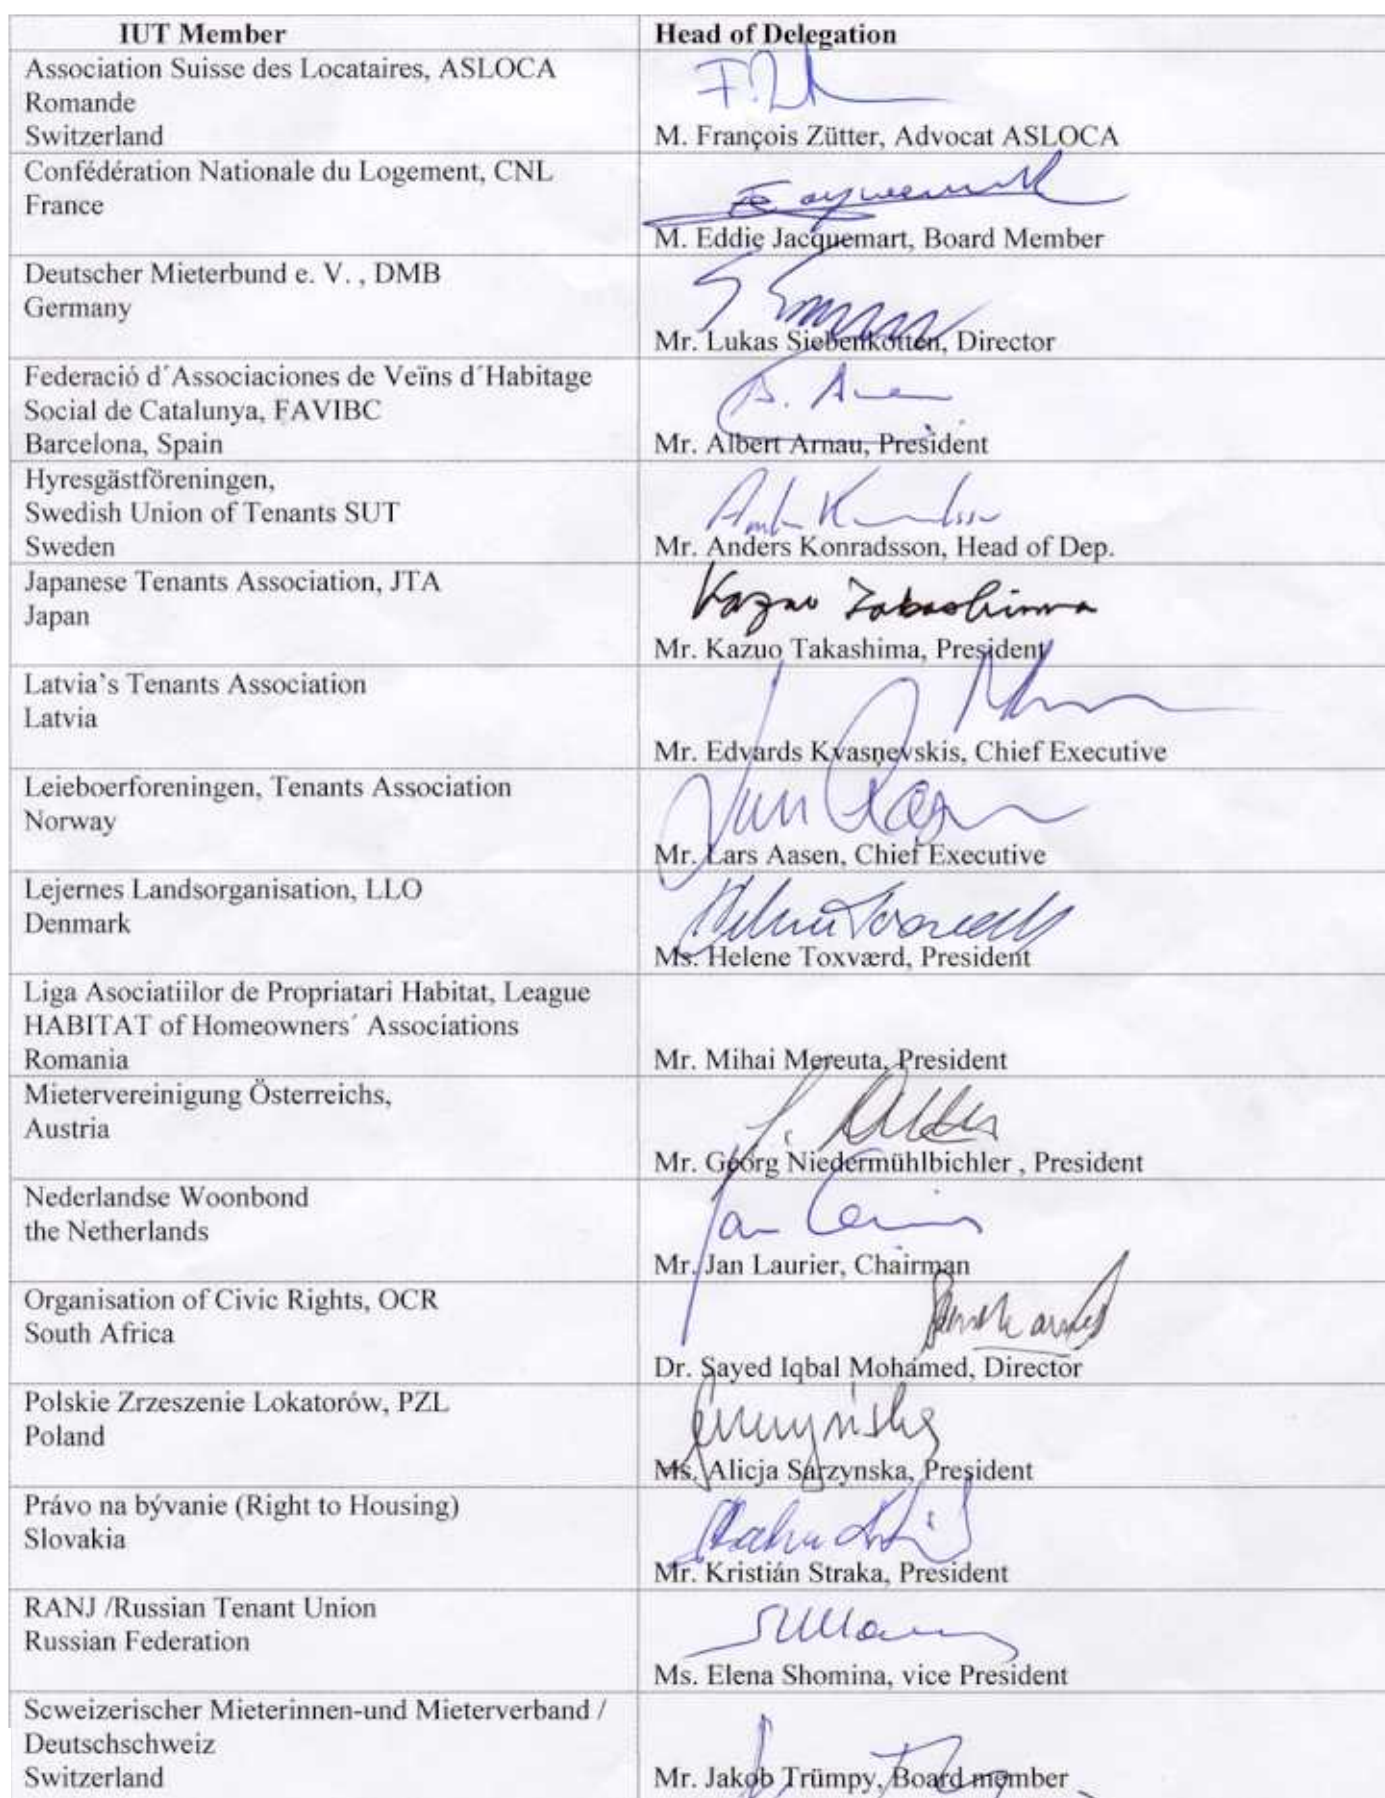 IUT Member
Head of Delegation
Association Suisse des Locataires, ASLOCA
Romande
Switzerland
M. François Zütter, Advocat ASLOCA
Confédération Nationale du Logement, CNL
France
M. Eddie Jacquemart, Board Member
Deutscher Mieterbund e. V. , DMB
Germany
Mr. Lukas Siebenkotten, Director
Federació d´Associaciones de Veïns d´Habitage
Social de Catalunya, FAVIBC
Barcelona, Spain
Mr. Albert Arnau, President
Hyresgästföreningen,
Swedish Union of Tenants SUT
Sweden
Mr. Anders Konradsson, Head of Dep.
Japanese Tenants Association, JTA
Japan
Kazuo Takashima
Mr. Kazuo Takashima, President
Latvia’s Tenants Association
Latvia
Mr. Edvards Kvasņevskis, Chief Executive
Leieboerforeningen, Tenants Association
Norway
Mr. Lars Aasen, Chief Executive
Lejernes Landsorganisation, LLO
Denmark
Ms. Helene Toxværd, President
Liga Asociatiilor de Propriatari Habitat, League
HABITAT of Homeowners´ Associations
Romania
Mr. Mihai Mereuta, President
Mietervereinigung Österreichs,
Austria
Mr. Georg Niedermühlbichler , President
Nederlandse Woonbond
the Netherlands
Mr. Jan Laurier, Chairman
Organisation of Civic Rights, OCR
South Africa
Dr. Sayed Iqbal Mohamed, Director
Polskie Zrzeszenie Lokatorów, PZL
Poland
Ms. Alicja Sarzynska, President
Právo na bývanie (Right to Housing)
Slovakia
Mr. Kristián Straka, President
RANJ /Russian Tenant Union
Russian Federation
Ms. Elena Shomina, vice President
Scweizerischer Mieterinnen-und Mieterverband /
Deutschschweiz
Switzerland
Mr. Jakob Trümpy, Board member